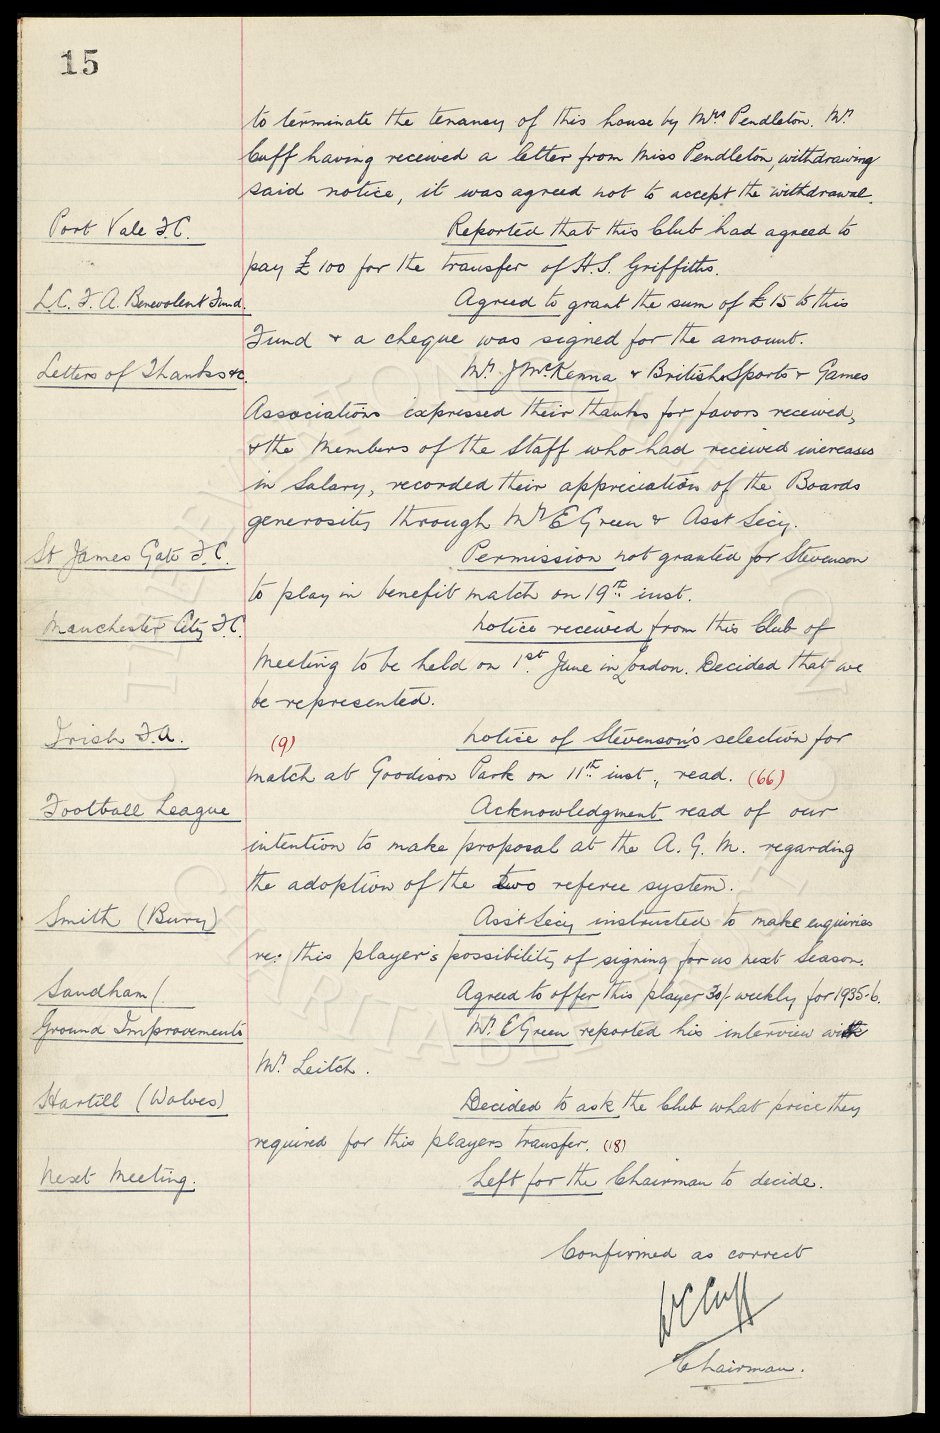 15
to terminate the tenancy of this house by Mrs Pendleton. Mr
Cuff having received a letter from Miss Pendleton, withdrawing
said notice, it was agreed not to accept the withdrawal.
Port Vale F.C. Reported that this Club had agreed to
pay £100 for the transfer of H.S. Griffiths.
L.C. F.A. Benevolent Fund. Agreed to grant the sum of £15 to this
Fund & a cheque was signed for the amount.
Letters of Thanks &c. Mr. J McKenna & British Sports & Games
Associations expressed their thanks for favors received,
& the Members of the Staff who had received increases
in Salary, recorded their appreciation of the Boards
generosity through Mr E Green & Asst Secy.
St James Gate F.C. Permission not granted for Stevenson
to play in benefit match on 19th inst.
Manchester City F.C. Notice received from this Club of
Meeting to be held on 1st June in London. Decided that we
be represented.
Irish F.A. (9) Notice of Stevenson's selection for
match at Goodison Park on 11th inst., read. (66)
Football League Acknowledgment read of our
intention to make proposal at the A.G.M. regarding
the adoption of the two referee system.
Smith (Bury) Asst Secy instructed to make enquiries
re: this player's possibility of signing for us next Season.
Sandham (. Agreed to offer this player 30/- weekly for 1935-6.
Ground Improvements Mr. E Green reported his interview with
Mr. Leitch.
Hartill (Wolves) Decided to ask the Club what price they
required for this players transfer. (18)
Next Meeting. Left for the Chairman to decide.
Confirmed as correct
W C Cuff
Chairman.
THE EVERTON COLLECTION
CHARITABLE TRUST